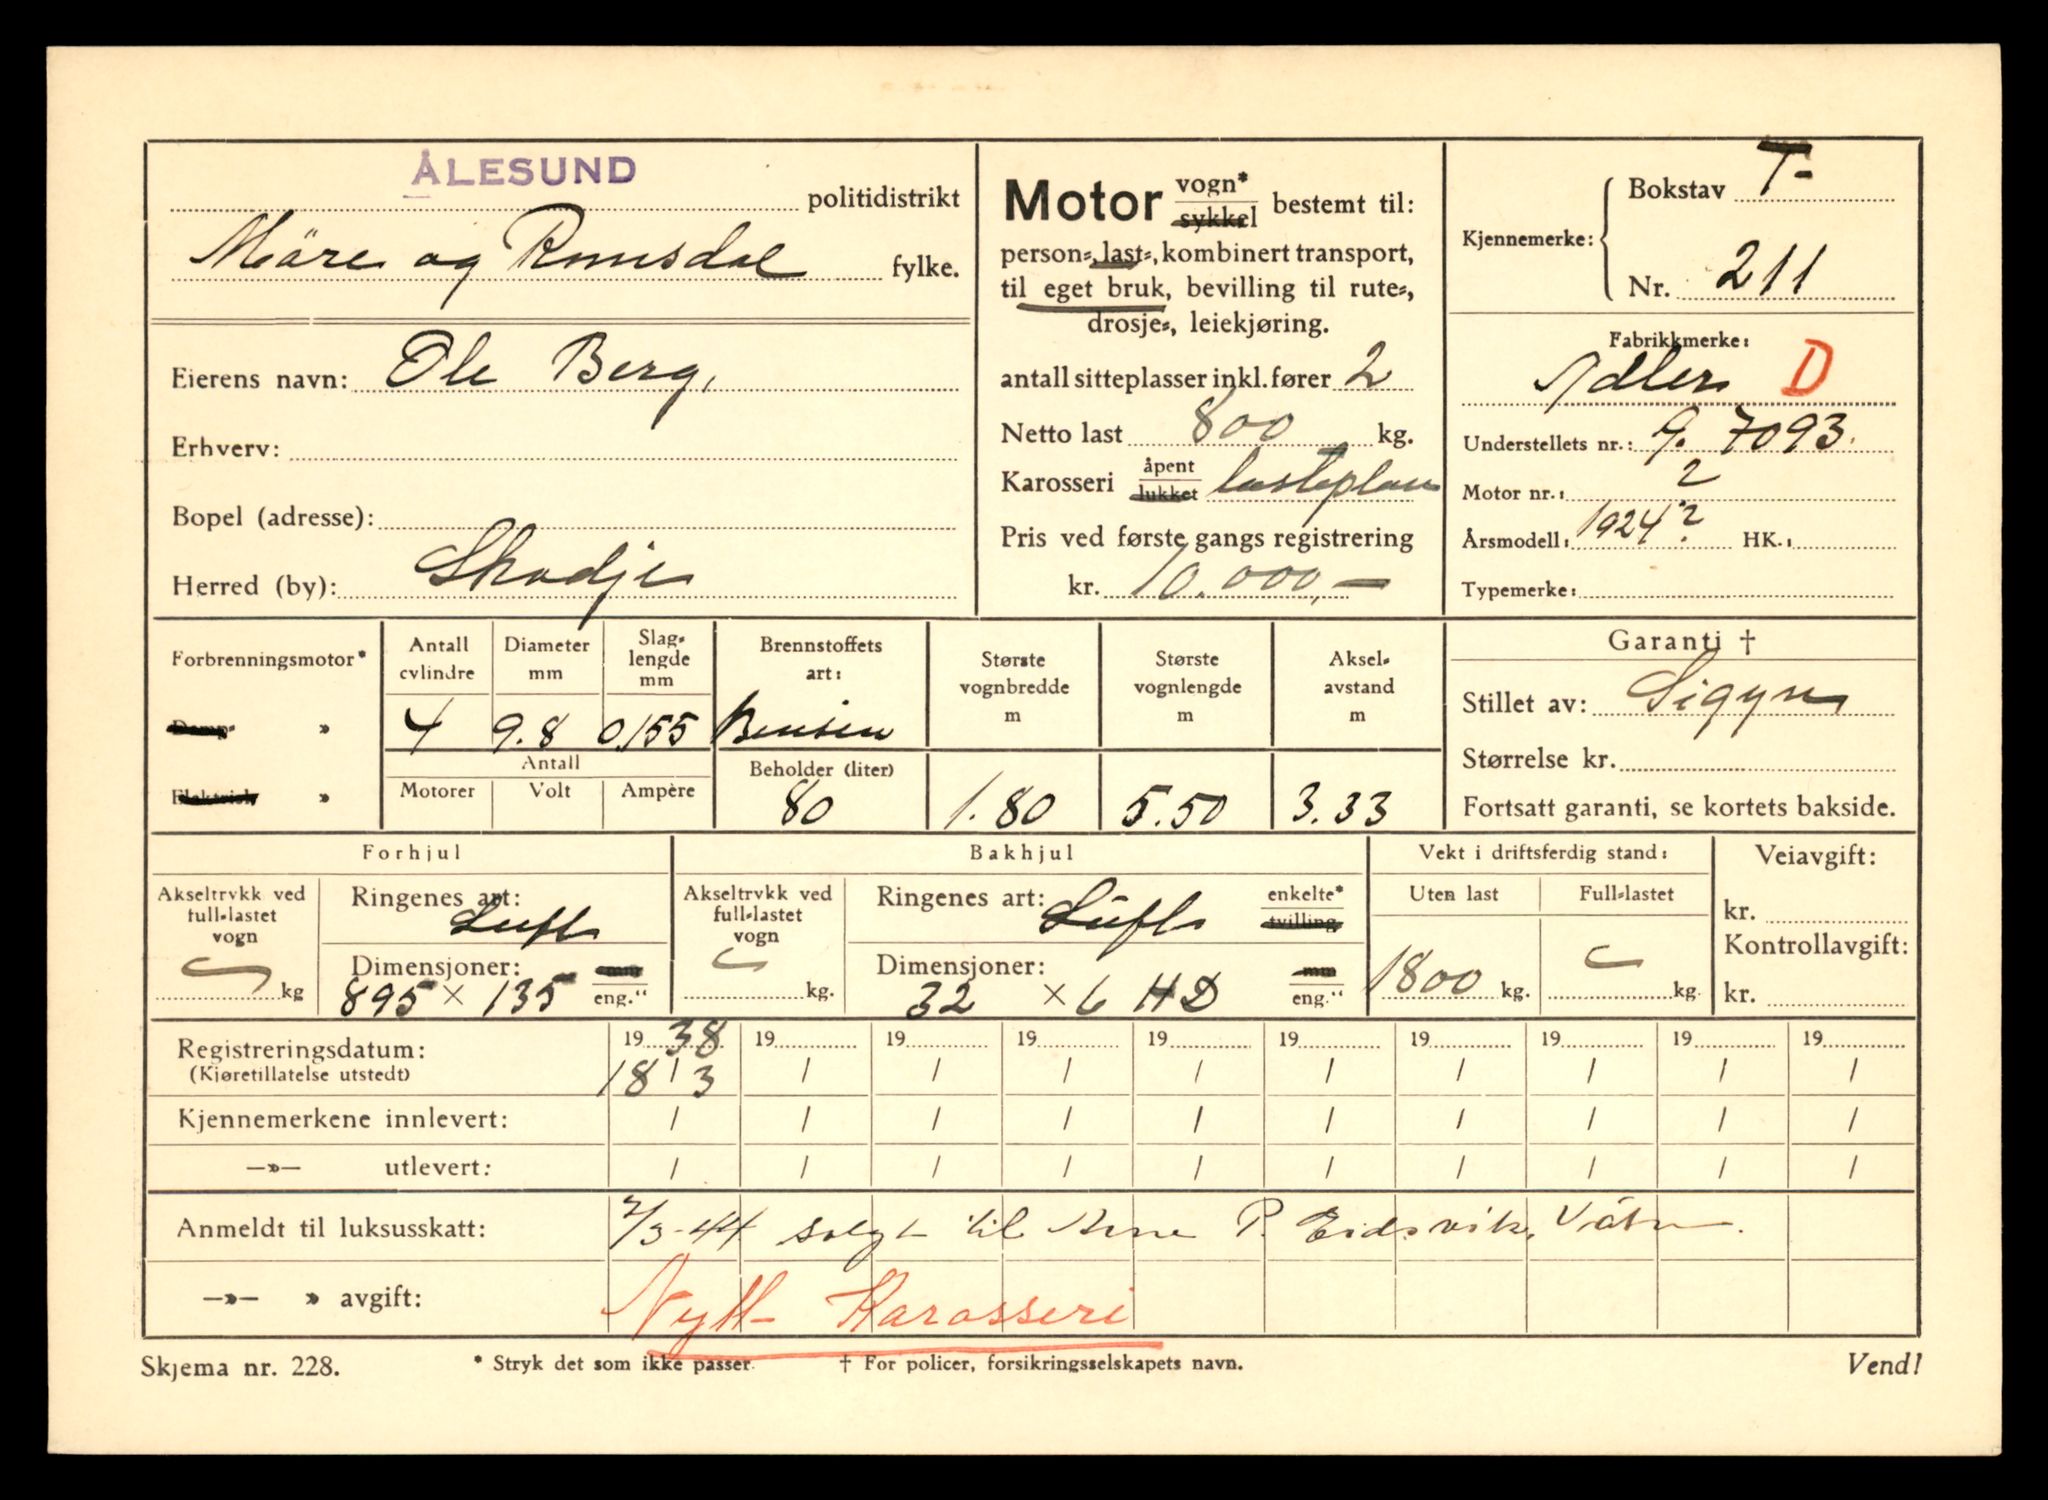 ÅLESUND
politidistrikt
Möre og Romsdal fylke.
Eierens navn: Ole Berg.
Erhverv:
Bopel (adresse):
Herred (by): Skodje
Motor vogn* sykkel bestemt til:
person-, last-, kombinert transport,
til eget bruk, bevilling til rute-,
drosje-, leiekjøring.
antall sitteplasser inkl. fører 2
Netto last 800 kg.
Karosseri åpent lukket lasteplan
Pris ved første gangs registrering
kr. 10.000,-
Kjennemerke:
Bokstav T-
Nr. 211
Fabrikkmerke:
Adler D
Understellets nr.: 9. 7093.
Motor nr.: ?
Årsmodell: 1924? HK.:
Typemerke:
Forbrenningsmotor*
Damp- »
Elektrisk »
Antall cylindre
Diameter mm
Slaglengde mm
4 9.8 0,155
Antall
Motorer Volt Ampère
Brennstoffets art:
Bensin
Beholder (liter)
80
Største vognbredde m
1.80
Største vognlengde m
5.50
Akselavstand m
3.33
Garanti †
Stillet av: Sigyn
Størrelse kr.
Fortsatt garanti, se kortets bakside.
Forhjul
Akseltrykk ved full-lastet vogn
kg
Ringenes art: Luft
Dimensjoner: mm
895 × 135 eng."
Bakhjul
Akseltrykk ved full-lastet vogn
kg.
Ringenes art: Luft enkelte* tvilling
Dimensjoner: mm
32 × 6 HD eng."
Vekt i driftsferdig stand:
Uten last Full-lastet
1800 kg. kg.
Veiavgift:
kr.
Kontrollavgift:
kr.
Registreringsdatum: 1938 19 19 19 19 19 19 19 19 19
(Kjøretillatelse utstedt) 18/3 / / / / / / / / /
Kjennemerkene innlevert: / / / / / / / / / /
—»— utlevert: / / / / / / / / / /
Anmeldt til luksusskatt: 7/3-44 solgt til Arne P. Eidsvik, Vatn.
—»— » avgift: Nytt Karosseri
Skjema nr. 228.
* Stryk det som ikke passer.
† For policer, forsikringsselskapets navn.
Vend!